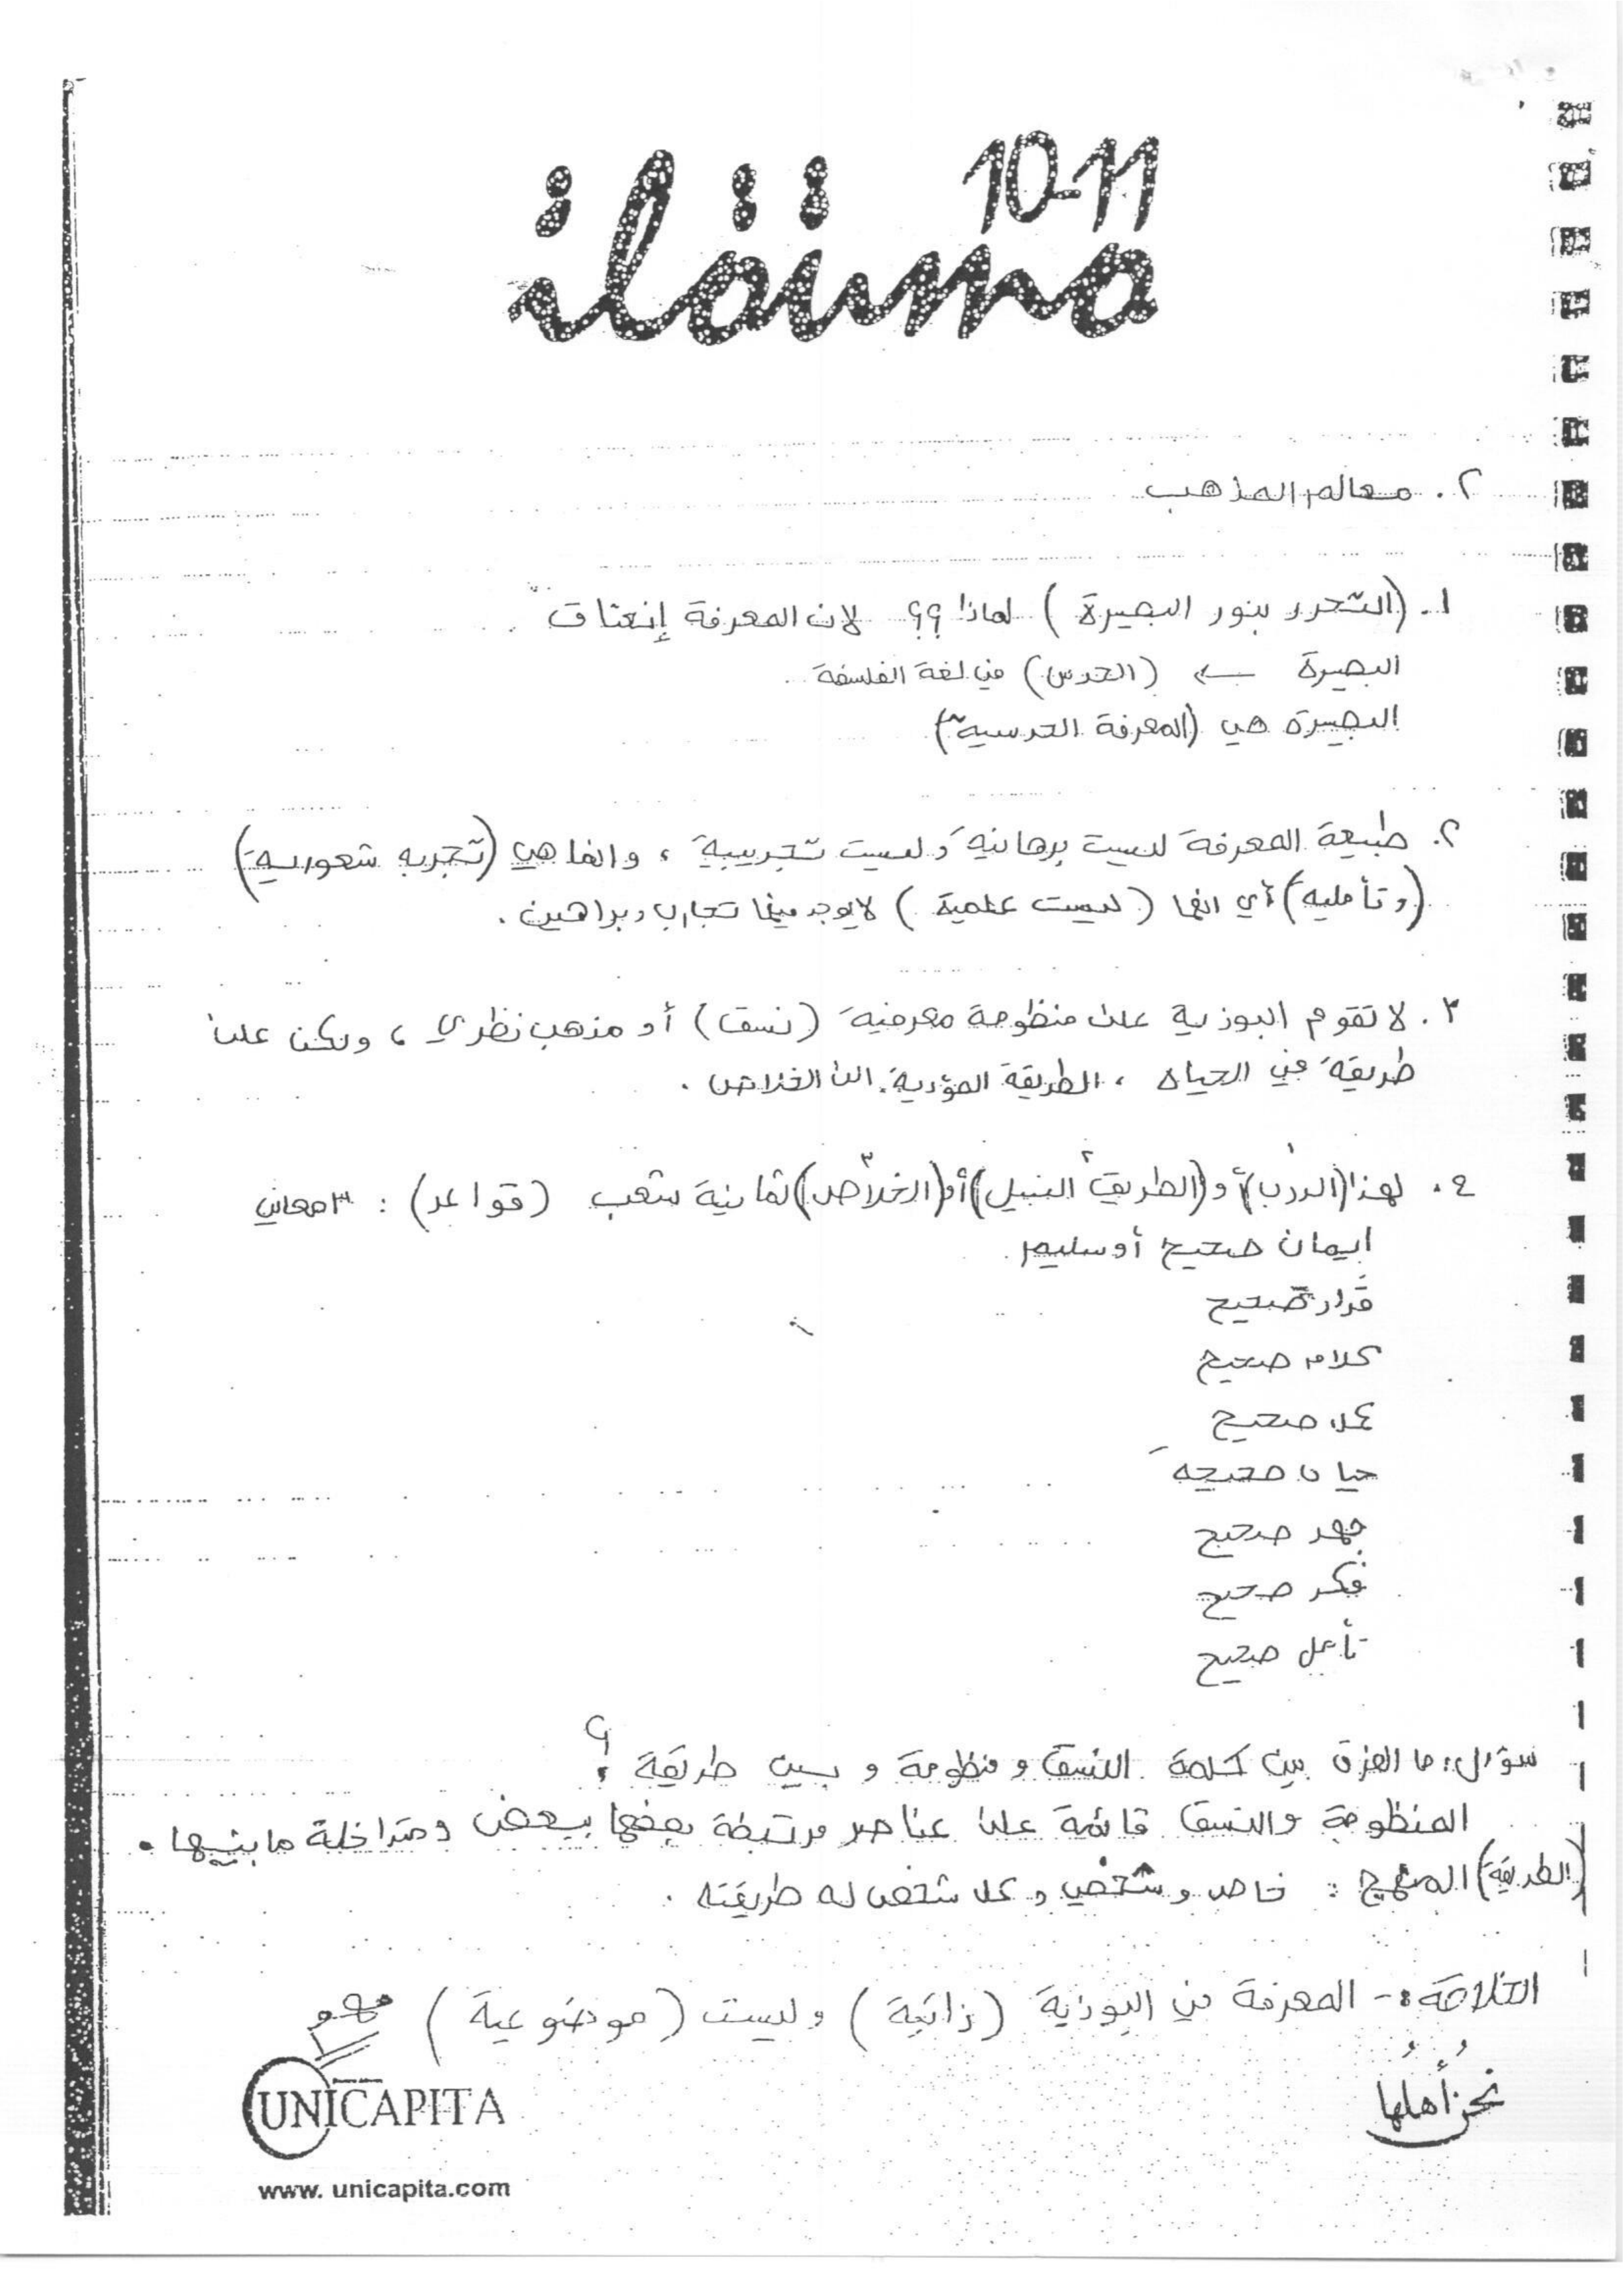 10-11
٢. معالم المذهب
١. (التحرر بنور البصيرة) لماذا ؟؟ لان المعرفة إنعتاق
البصيرة ← (الحدس) في لغة الفلسفة
البصيرة هي (المعرفة الحدسية)
٢. طبيعة المعرفة ليست برهانية وليست تجريبية ، وانما هي (تجربه شعورية)
(وتأمليه) أي انها (ليست علمية) لا يوجد فيها تجارب وبراهين .
٣. لا تقوم البوذية على منظومة معرفية (نسق) أو مذهب نظري ، ولكن على
طريقة في الحياه ، الطريقة المؤدية الى الخلاص .
٤. لهذا (الدرب)١ أو (الطريق النبيل)٢ أو (الخلاص)٣ ثمانية شعب (قواعد) : ٣ معاني
ايمان صحيح أو سليم
قرار صحيح
كلام صحيح
عمل صحيح
حياة صحيحة
جهد صحيح
فكر صحيح
تأمل صحيح
سؤال : ما الفرق بين كلمة النسق ومنظومة و بين طريقة ؟
المنظومة والنسق قائمة على عناصر مرتبطة بعضها ببعض ومتداخلة ما بينها .
(الطريقة) المنهج : خاص وشخصي وكل شخص له طريقته .
الخلاصة :- المعرفة في البوذية (ذاتية) وليست (موضوعية) مهم
نحن أهلها
UNICAPITA
www. unicapita.com